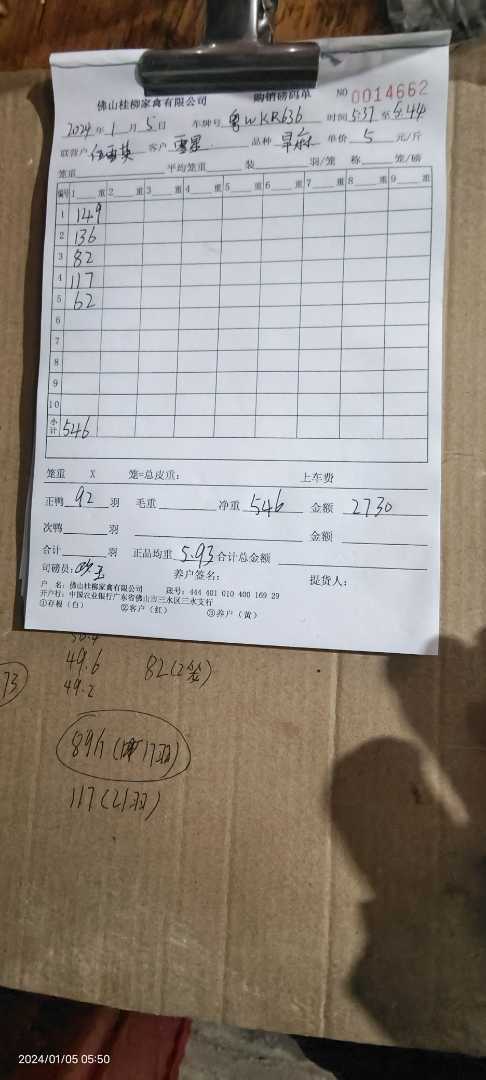 佛山桂柳家禽有限公司 购销磅码单 NO 0014662
2024年1月5日 车牌号 粤WKR636 时间 5:37 至 5:44
联营户 客户 雪星 品种 早麻 单价 5 元/斤
笼重 平均笼重 装 羽/笼 称 笼/磅
编号 1 重 2 重 3 重 4 重 5 重 6 重 7 重 8 重 9 重
1 149
2 136
3 82
4 117
5 62
6
7
8
9
10
小计 546
笼重 X 笼=总皮重: 上车费
正鸭 92 羽 毛重 净重 546 金额 2730
次鸭 羽 金额
合计 羽 正品均重 5.93 合计总金额
司磅员: 养户签名: 提货人:
户 名: 佛山桂柳家禽有限公司 账号: 444 401 010 400 169 29
开户行: 中国农业银行广东省佛山市三水区三水支行
①存根(白) ②客户(红) ③养户(黄)
49.6 82(2笼)
49.2
73
117(21羽)
2024/01/05 05:50